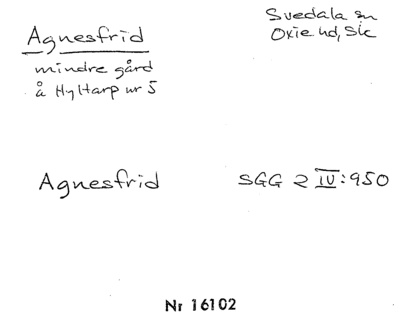 Agnesfrid
mindre gård
å Hyltarp nr 5
Svedala sn
Oxie hd, Sk
Agnesfrid SGG 2 IV:950
Nr 16102